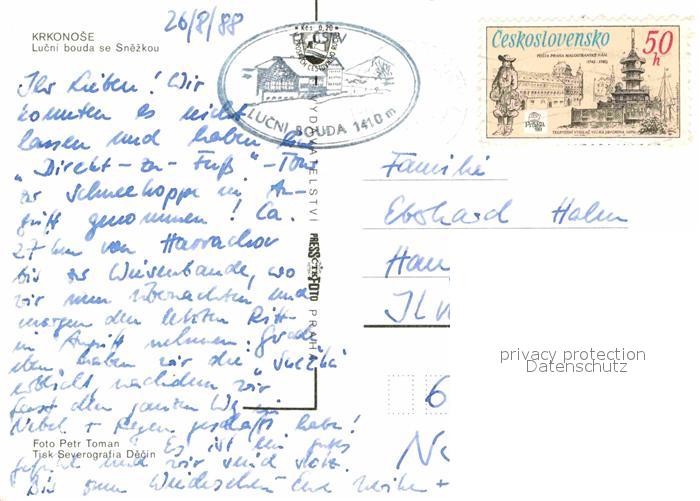 26/8/88
KRKONOŠE
Luční bouda se Sněžkou
Ihr Lieben! Wir
konnten es nicht
lassen und haben die
"Direkt-zu-Fuß"-Tour
zur Schneekoppe in An-
griff genommen! Ca.
27 km von Harrachov
bis zur Wiesenbaude, wo
wir nun übernachten und
morgen den letzten Ritt
in Angriff nehmen. Gerade
eben haben wir die
erblickt, nachdem wir
fast den ganzen Weg in
Nebel + Regen geschafft haben!
Es ist ein gutes
Gefühl und wir sind stolz.
Bis zum Wiedersehen
Foto Petr Toman
Tisk Severografia Děčín
VYDAVATELSTVÍ
PRESSFOTO
PRAHA
LUČNÍ BOUDA 1410 m
Československo
50 h
PRAGA
Familie
Eberhard Hahn
6
privacy protection
Datenschutz